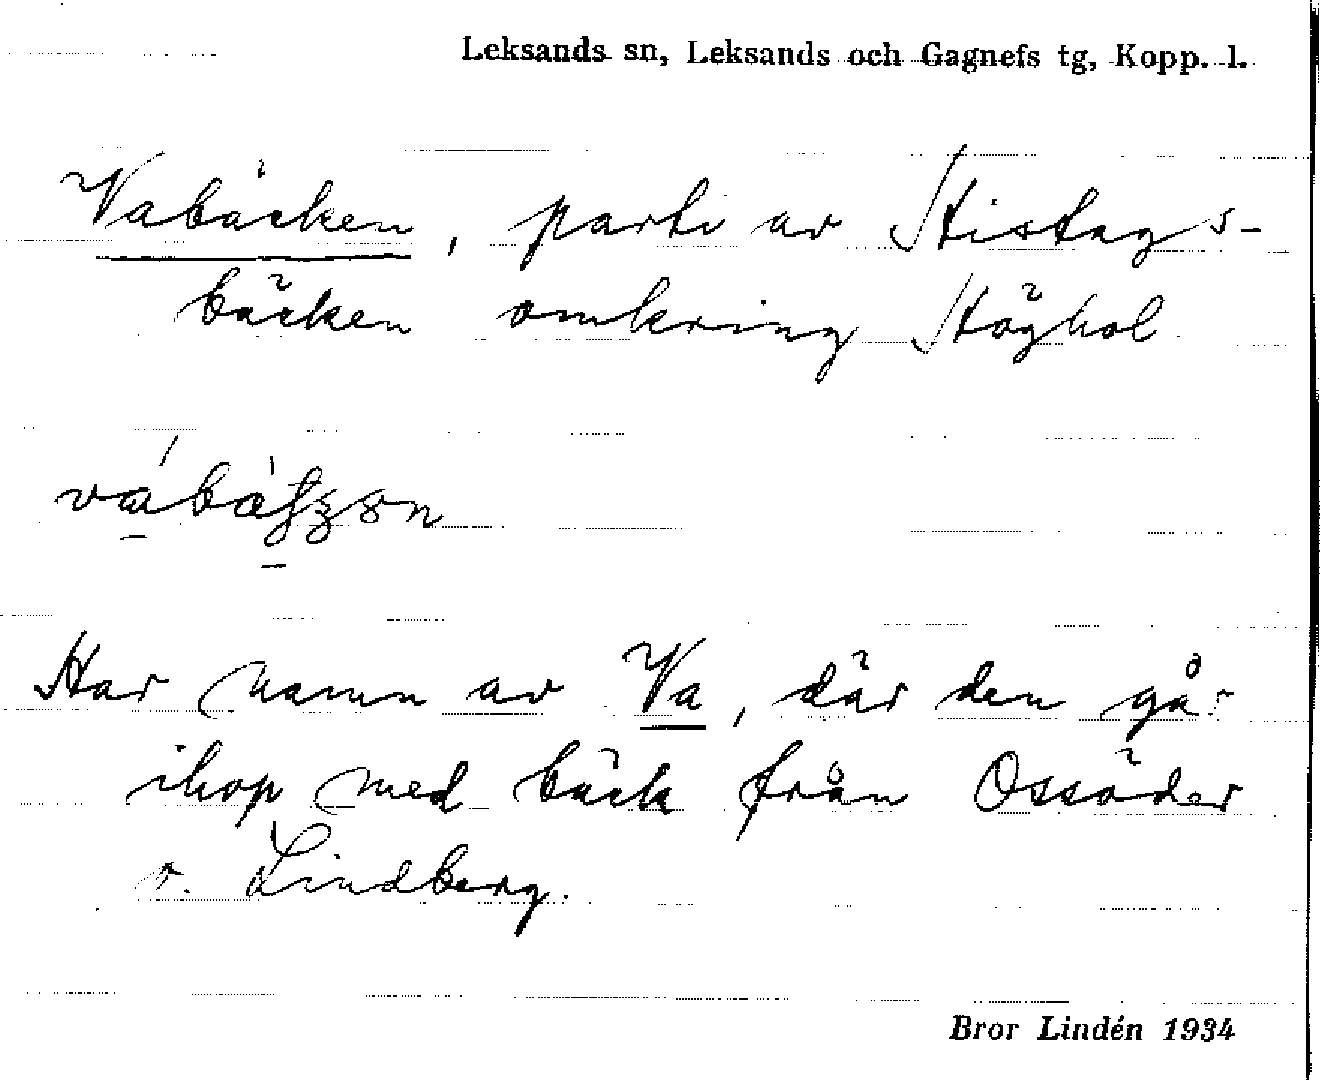 Leksands sn, Leksands och Gagnefs tg, Kopp. l.
Vabäcken, parti av Histags-
bäcken omkring Höghol
Har namn av Va, där den går
ihop med bäck från Ossöder
v. Lindberg.
Bror Lindén 1934